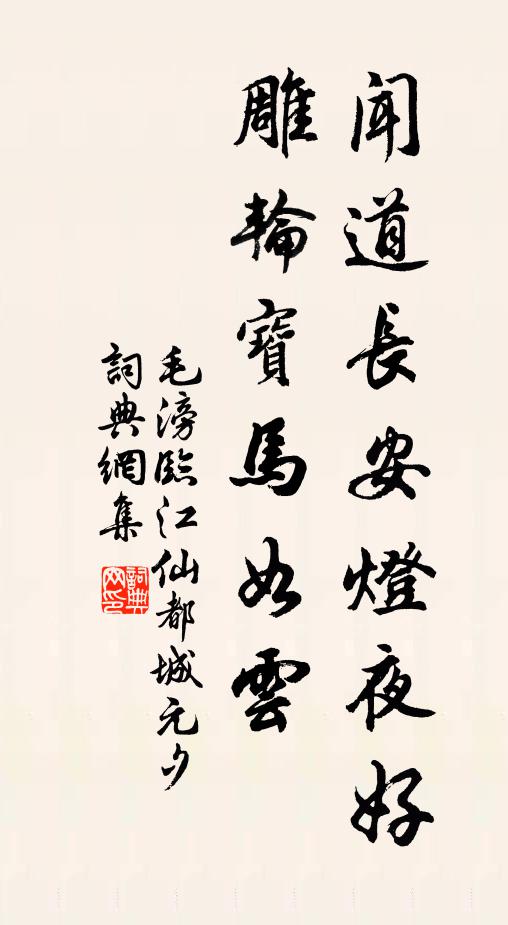 聞道長安燈夜好
雕輪寶馬如雲
毛滂臨江仙都城元夕
詞典網集
詞典网印